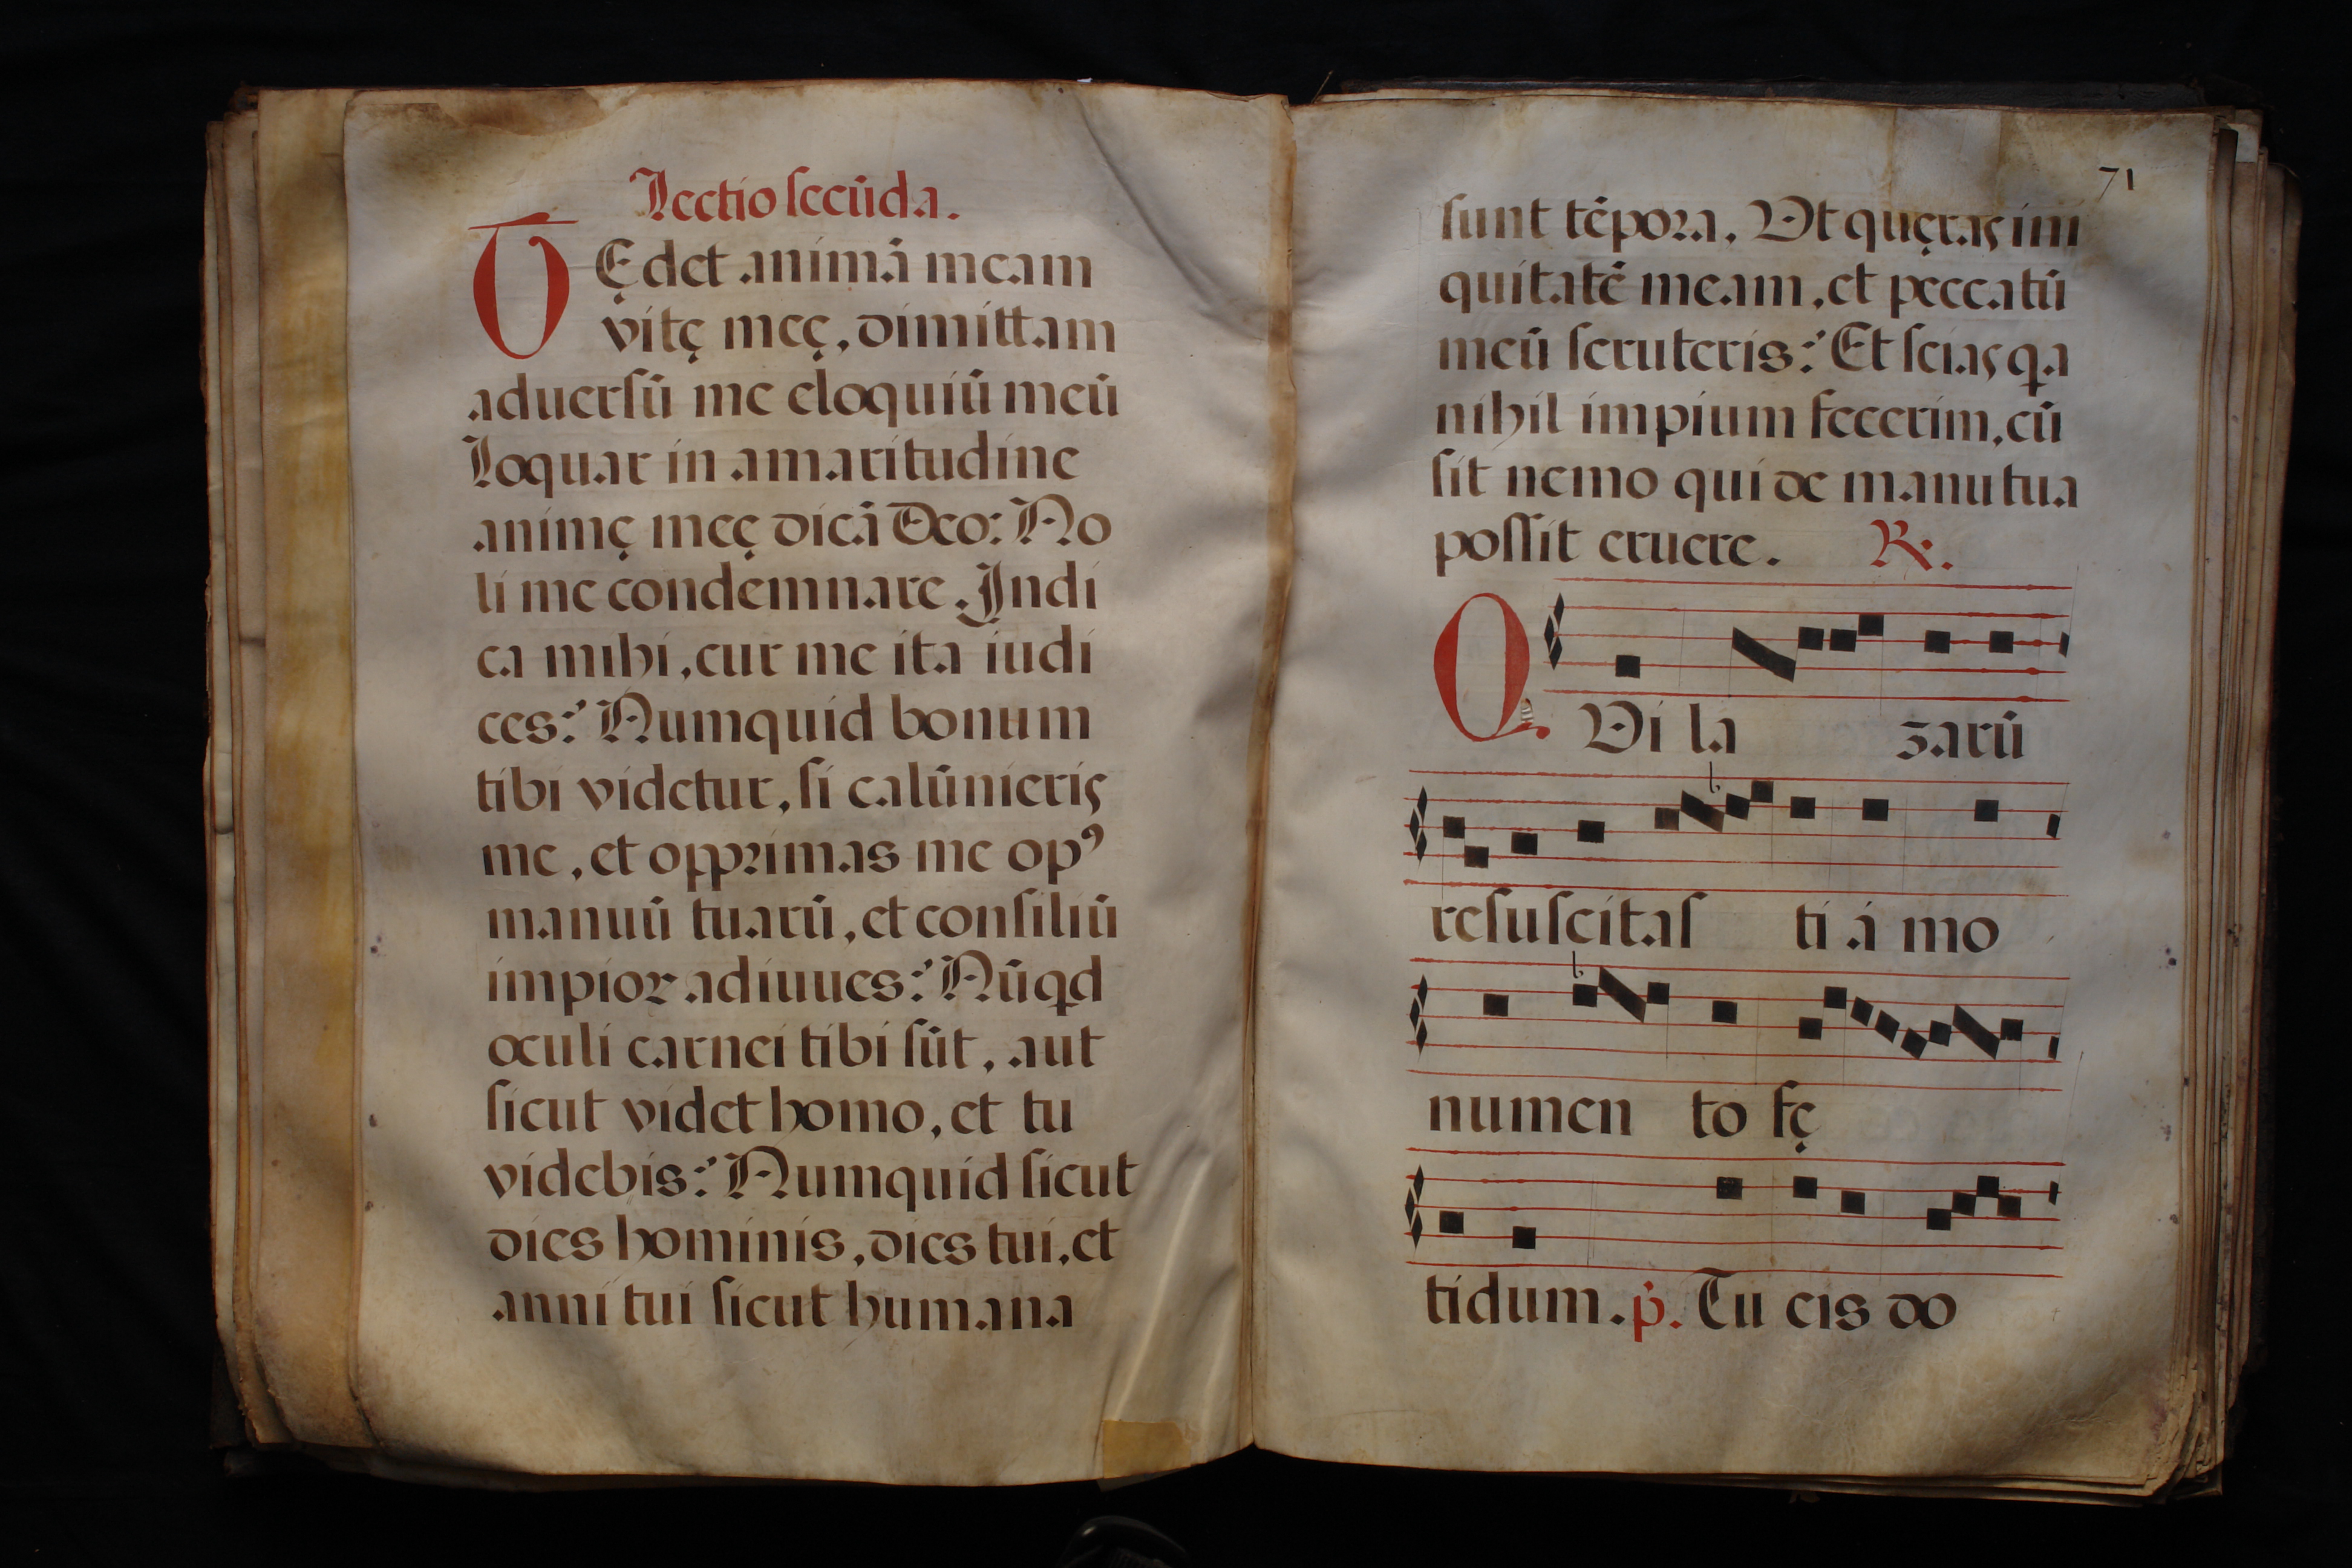 Lectio secūda.
TĘdet animā meam
vitę meę, dimittam
aduersū me eloquiū meū
Loquar in amaritudine
animę meę dicā Deo: No
li me condemnare. Indi
ca mihi, cur me ita iudi
ces? Numquid bonum
tibi videtur, si calūnieris
me, et opprimas me opꝰ
manuū tuarū, et consiliū
impioꝝ adiuues? Nūqd
oculi carnei tibi sūt, aut
sicut videt homo, et tu
videbis? Numquid sicut
dies hominis, dies tui, et
anni tui sicut humana
71
sunt tēpora. Vt quęras ini
quitatē meam, et peccatū
meū scruteris? Et scias qa
nihil impium fecerim, cū
sit nemo qui de manu tua
possit eruere. R.
QVi la zarū
resuscitas ti á mo
numen to fę
tidum. p. Tu eis do